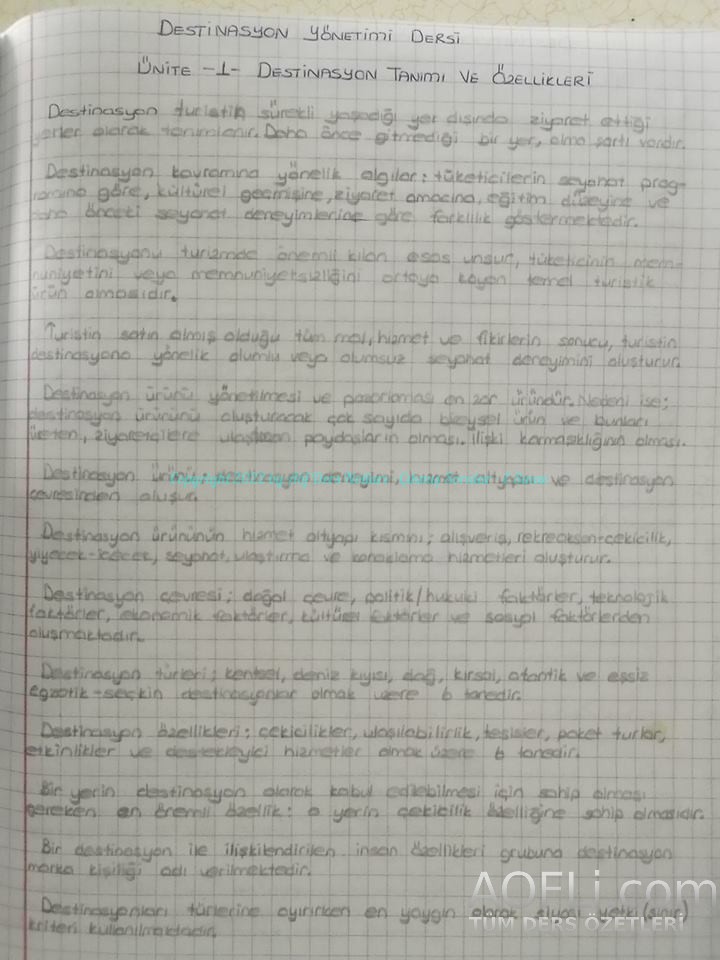 DESTİNASYON YÖNETİMİ DERSİ
ÜNİTE -1- DESTİNASYON TANIMI VE ÖZELLİKLERİ
Destinasyon turistin sürekli yaşadığı yer dışında ziyaret ettiği
yerler olarak tanımlanır. Daha önce gitmediği bir yer, olma şartı vardır.
Destinasyon kavramına yönelik algılar: tüketicilerin seyahat prog-
ramına göre, kültürel geçmişine, ziyaret amacına, eğitim düzeyine ve
daha önceki seyahat deneyimlerine göre farklılık göstermektedir.
Destinasyonu turizmde önemli kılan esas unsur, tüketicinin mem-
nuniyetini veya memnuniyetsizliğini ortaya koyan temel turistik
ürün olmasıdır.
Turistin satın almış olduğu tüm mal, hizmet ve fikirlerin sonucu, turistin
destinasyona yönelik olumlu veya olumsuz seyahat deneyimini oluşturur.
Destinasyon ürünü yönetilmesi ve pazarlaması en zor üründür. Nedeni ise;
destinasyon ürününü oluşturacak çok sayıda bireysel ürün ve bunları
üreten, ziyaretçilere ulaştıran paydaşların olması. İlişki karmaşıklığının olması.
Destinasyon ürünü; destinasyon deneyimi, hizmet altyapısı ve destinasyon
çevresinden oluşur.
Destinasyon ürününün hizmet altyapı kısmını; alışveriş, rekreasyon-çekicilik,
yiyecek-içecek, seyahat, ulaştırma ve konaklama hizmetleri oluşturur.
Destinasyon çevresi; doğal çevre, politik/hukuki faktörler, teknolojik
faktörler, ekonomik faktörler, kültürel faktörler ve sosyal faktörlerden
oluşmaktadır.
Destinasyon türleri; kentsel, deniz kıyısı, dağ, kırsal, otantik ve eşsiz
egzotik-seçkin destinasyonlar olmak üzere 6 tanedir.
Destinasyon özellikleri; çekicilikler, ulaşılabilirlik, tesisler, paket turlar,
etkinlikler ve destekleyici hizmetler olmak üzere 6 tanedir.
Bir yerin destinasyon olarak kabul edilebilmesi için sahip olması
gereken en önemli özellik: o yerin çekicilik özelliğine sahip olmasıdır.
Bir destinasyon ile ilişkilendirilen insan özellikleri grubuna destinasyon
marka kişiliği adı verilmektedir.
Destinasyonları türlerine ayırırken en yaygın olarak siyasi yetki (sınır)
kriteri kullanılmaktadır.
AOFLi.com
TÜM DERS ÖZETLERİ